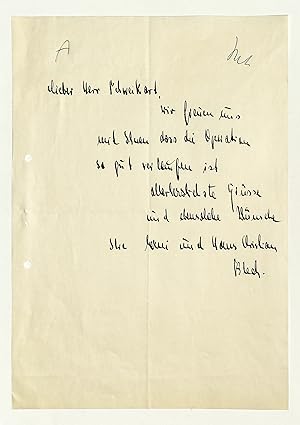 A
Lieber Herr Schweikart,
wir freuen uns
mit Ihnen dass die Operation
so gut verlaufen ist
allerherzlichste Grüsse
und ebensolche Wünsche
Ihre und Hans Christian
Blech.